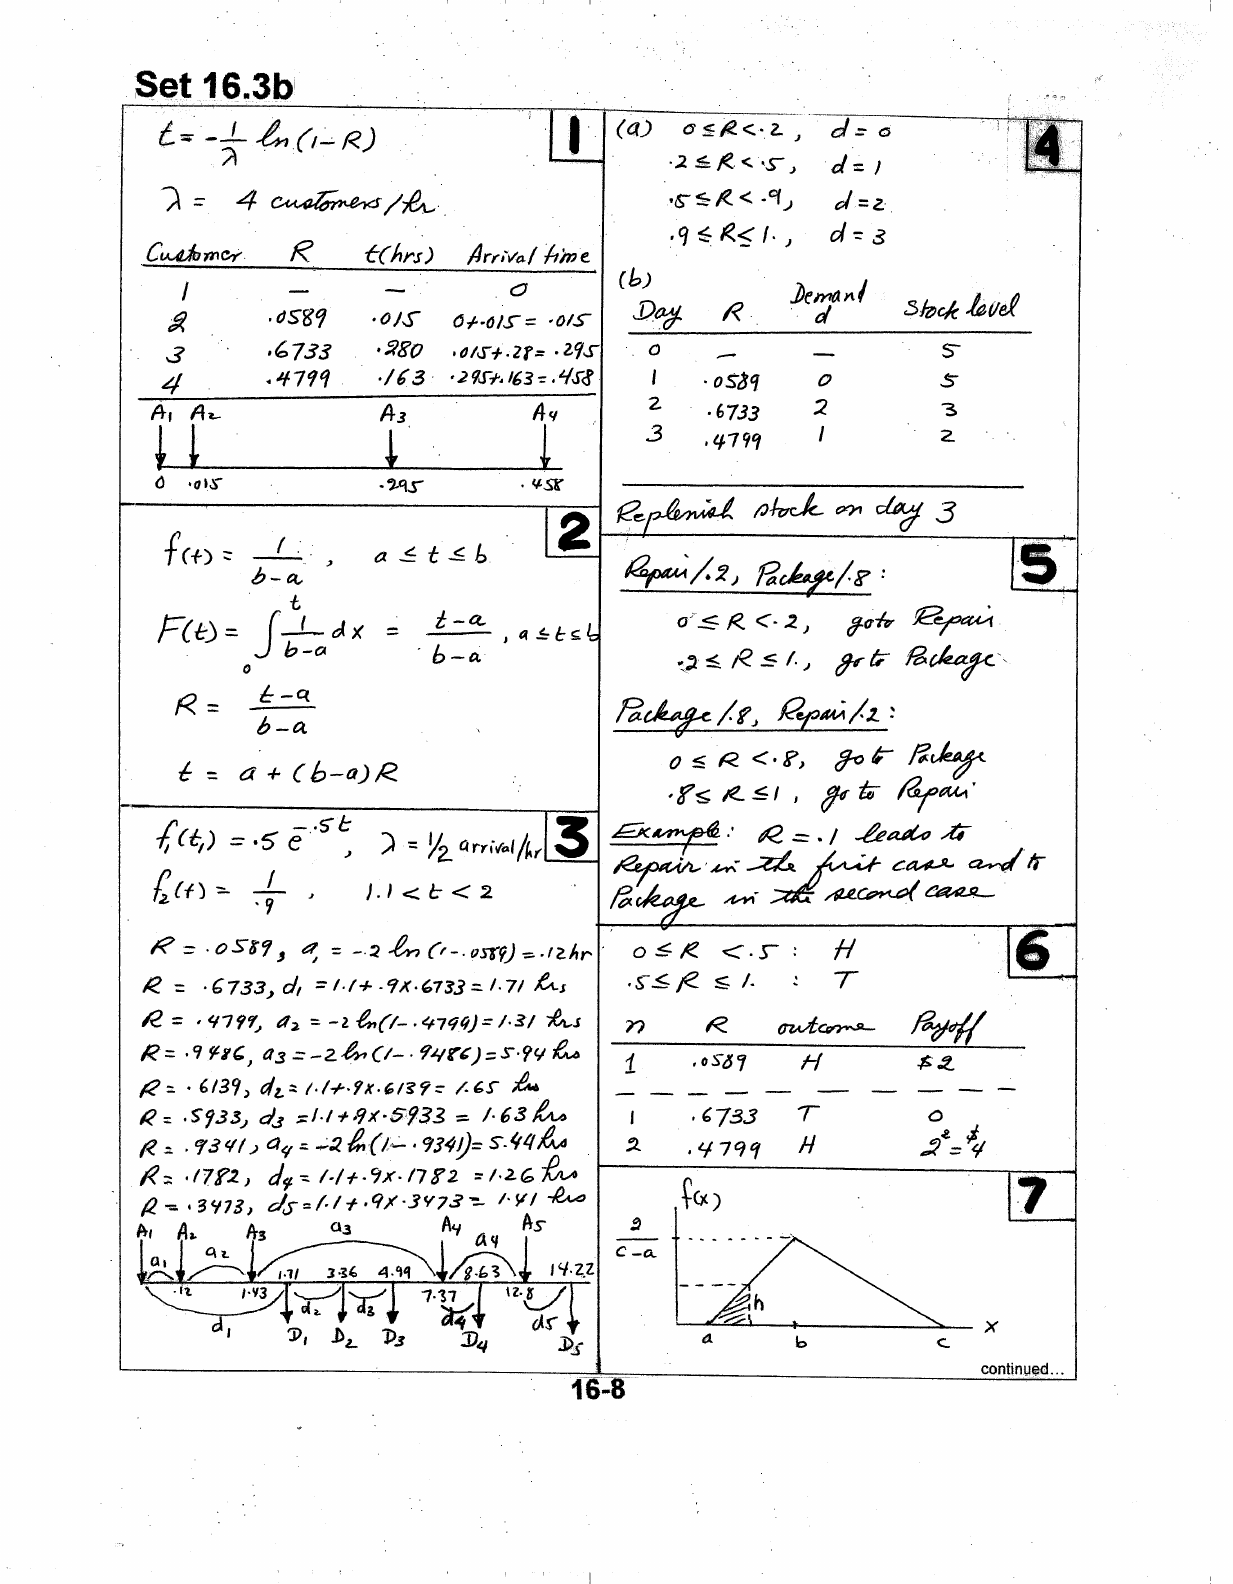 Set 16.3b
1
t = - 1/λ ln (1 - R)
λ = 4 customers/hr
Customer R t(hrs) Arrival time
1 — — 0
2 .0589 .015 0+.015 = .015
3 .6733 .280 .015+.28= .295
4 .4799 .163 .295+.163=.458
A1 A2 A3 A4
0 .015 .295 .458
2
f(t) = 1/(b-a) , a ≤ t ≤ b
F(t) = ∫₀ᵗ 1/(b-a) dx = (t-a)/(b-a) , a ≤ t ≤ b
R = (t-a)/(b-a)
t = a + (b-a)R
3
f1(t1) = .5 e^-.5t , λ = 1/2 arrival/hr
f2(t) = 1/.9 , 1.1 < t < 2
R = .0589, a1 = -.2 ln (1-.0589) = .12hr
R = .6733, d1 = 1.1+.9x.6733 = 1.71 hrs
R = .4799, a2 = -2 ln(1-.4799) = 1.31 hrs
R = .9486, a3 = -2 ln (1-.9486) = 5.94 hrs
R = .6139, d2 = 1.1+.9x.6139 = 1.65 hrs
R = .5933, d3 = 1.1+.9x.5933 = 1.63 hrs
R = .9341, a4 = -2 ln(1-.9341) = 5.44 hrs
R = .1782, d4 = 1.1+.9x.1782 = 1.26 hrs
R = .3473, d5 = 1.1+.9x.3473 = 1.41 hrs
A1 A2 A3 a3 A4 a4 A5
a1 a2 1.71 3.36 4.99 8.63 14.22
.12 1.43 d2 d3 7.37 12.8
d1 D1 D2 D3 d4 D4 d5 D5
4
(a) 0 ≤ R < .2 , d = 0
.2 ≤ R < .5 , d = 1
.5 ≤ R < .9, d = 2
.9 ≤ R ≤ 1. , d = 3
(b)
Day R Demand d Stock level
0 — — 5
1 .0589 0 5
2 .6733 2 3
3 .4799 1 2
Replenish stock on day 3
5
Repair/.2, Package/.8 :
0 ≤ R < .2, goto Repair
.2 ≤ R ≤ 1. , go to Package
Package/.8, Repair/.2 :
0 ≤ R < .8, go to Package
.8 ≤ R ≤ 1 , go to Repair
Example: R = .1 leads to
Repair in the first case and to
Package in the second case
6
0 ≤ R < .5 : H
.5 ≤ R ≤ 1. : T
n R outcome Payoff
1 .0589 H $2
1 .6733 T 0
2 .4799 H 2² = $4
7
f(x)
2/(c-a)
h
a b c x
continued...
16-8